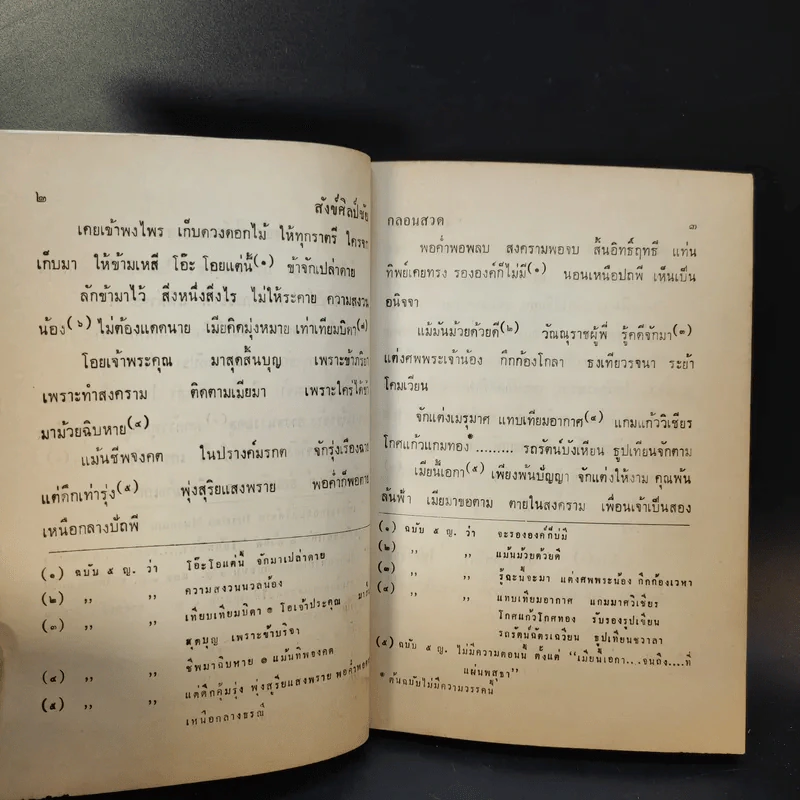 ๒
สังข์ศิลป์ชัย
เคยเข้าพงไพร เก็บดวงดอกไม้ ให้ทุกราตรี ใครจะ
เก็บมา ให้ข้ามเหสี โอ๊ะ โอยแต่นี้(๑) ข้าจักเปล่าดาย
ลักข้ามาไว้ สิ่งหนึ่งสิ่งไร ไม่ให้ระคาย ความสงวน
น้อง(๒) ไม่ต้องแดดนาย เมียคิดมุ่งหมาย เท่าเทียมบิดา(๓)
โอยเจ้าพระคุณ มาสุดสิ้นบุญ เพราะข้า
เพราะทำสงคราม ติดตามเมียมา เพราะใคร่ได้
มาม้วยฉิบหาย(๔)
แม้นชีพจงคต ในปรางค์มรกต จักรุ่งเรือง
แต่ดึกเท่ารุ่ง(๕) พุ่งสุริยแสงพราย พอค่ำก็พอตาย
เหนือกลางปัถพี
(๑) ฉบับ ๕ ญ. ว่า โอ๊ะโอแต่นี้ จักมาเปล่าดาย
(๒) ,, ,, ความสงวนนวลน้อง
(๓) ,, ,, เทียบเทียมบิดา ๑ โอเจ้าประคุณ
สุดบุญ เพราะข้าบริจา
(๔) ,, ,, ชีพมาฉิบหาย ๑ แม้นทิพองคต
(๕) ,, ,, แต่ดึกคุ้มรุ่ง พุ่งสุริยแสงพราย พอค่ำ
เหนือกลางธรณี
กลอนสวด
๓
พอค่ำพอพลบ สงครามพอจบ สิ้นอิทธิ์ฤทธี แท่น
ทิพย์เคยทรง รององค์ก็ไม่มี(๑) นอนเหนือปถพี เห็นเป็น
อนิจจา
แม้มันม้วยด้วยดี(๒) วัณณุราชผู้พี่ รู้คดีจักมา(๓)
แต่งศพพระเจ้าน้อง กึกก้องโกลา ธงเทียวรจนา ระย้า
โคมเวียน
จักแต่งเมรุมาศ แทบเทียมอากาศ(๔) แกมแก้ววิเชียร
โกศแก้วแกมทอง*......... รถรัตน์บังเหียน ธูปเทียนจักตาม
เมียนี้เอกา(๕) เพียงพ้นปัญญา จักแต่งให้งาม คุณพ้น
ล้นฟ้า เมียมาขอตาม ตายในสงคราม เพื่อนเจ้าเป็นสอง
(๑) ฉบับ ๕ ญ. ว่า จะรององค์ก็บ่มี
(๒) ,, ,, แม้นม้วยด้วยดี
(๓) ,, ,, รู้ฉะนี้จะมา แต่งศพพระน้อง กึกก้องเวหา
(๔) ,, ,, แทบเทียมอากาศ แกมมาศวิเชียร
โกศแก้วโกศทอง รับรองรูปเขียน
รถรัตน์ฉัตรเฉวียน ธูปเทียนชวาลา
(๕) ฉบับ ๕ ญ. ไม่มีความตอนนี้ ตั้งแต่ "เมียนี้เอกา...จนถึง....ที่
แผ่นพสุธา"
* ต้นฉบับไม่มีความวรรคนี้